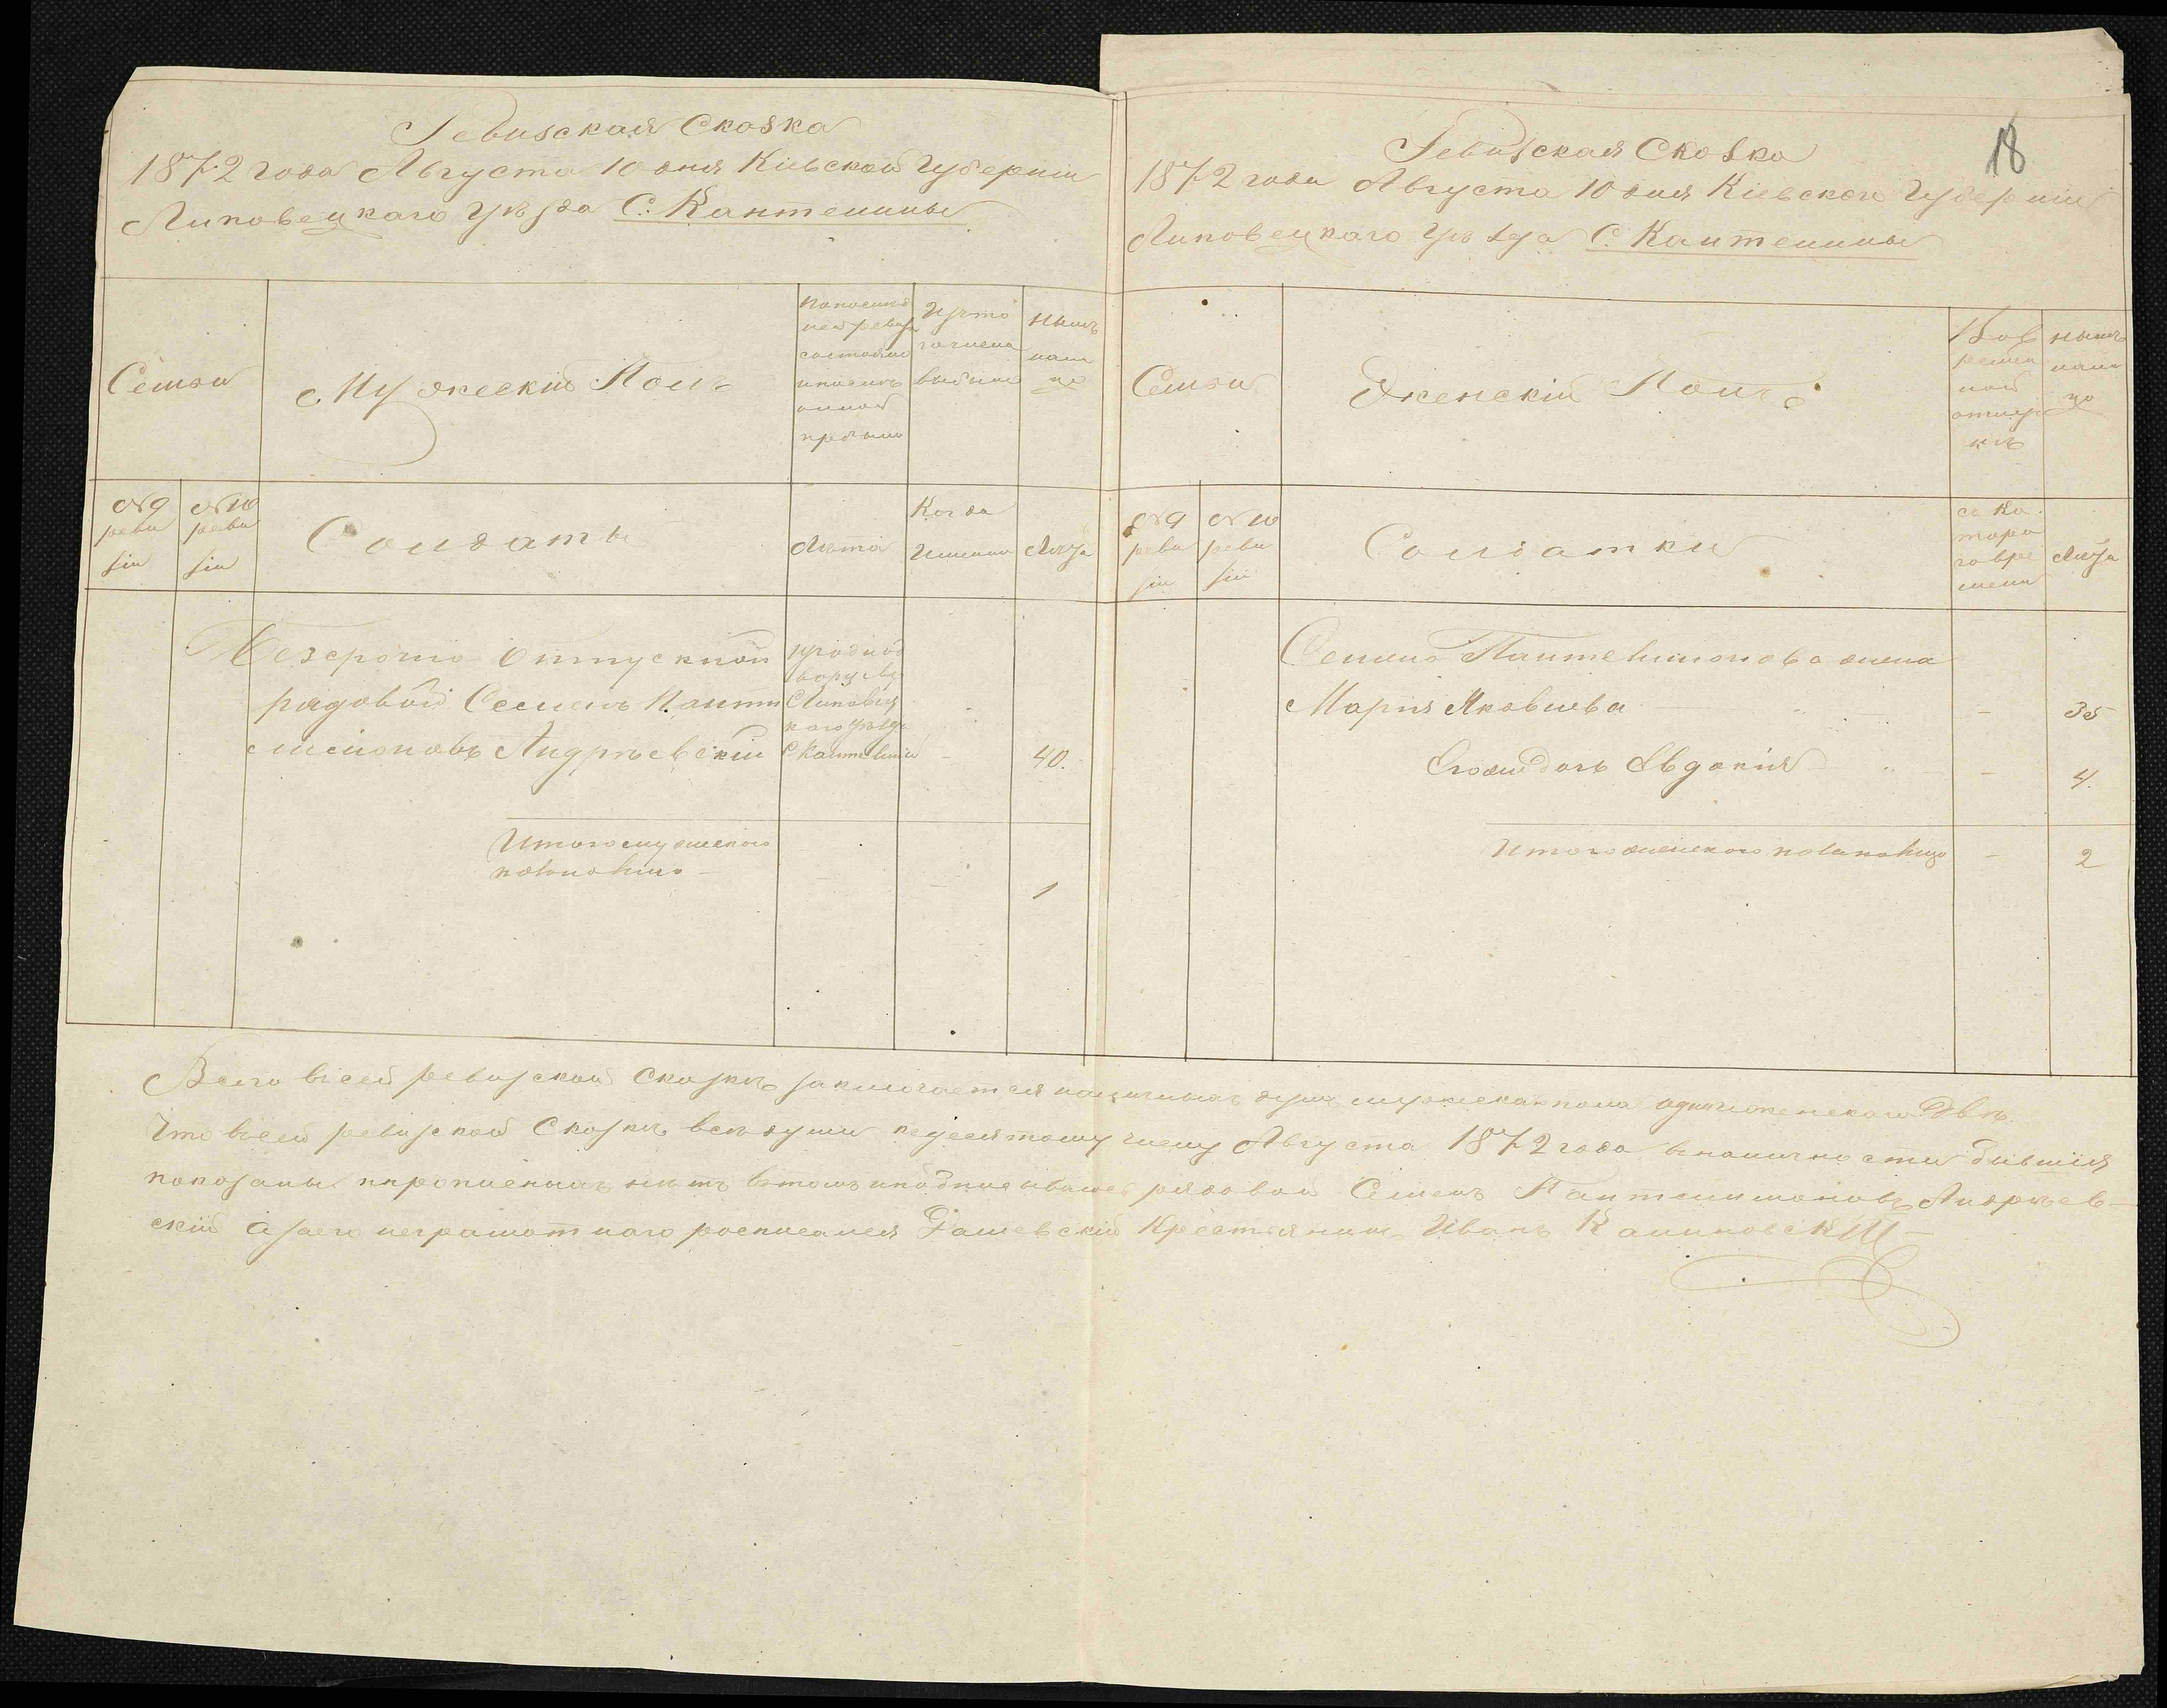 Ревизская Сказка
1872 года Августа 10 дня Кіевской Губерніи
Липовецкаго Уѣзда С. Кантелины
Семьи
Мужескій Полъ
По последней ревизіи состояло и после оной прибыло
Изъ того числа выбыло
Нынѣ налицо
№ 9 ревизіи
№ 10 ревизіи
Солдаты
Лѣта
Когда Именно
Лѣта
Безсрочно Отпускной
рядовой Семенъ Панте
лимоновъ Андрѣевскій
Липовец
каго уѣзда
С Кантелины
-
40.
Итого мужескаго
пола налицо -
-
-
1
18
Ревизская Сказка
1872 года Августа 10 дня Кіевской Губерніи
Липовецкаго Уѣзда С. Кантелины
Семьи
Женскій Полъ
Во временной отлучкѣ
Нынѣ налицо
№ 9 ревизіи
№ 10 ревизіи
Солдатки
съ котораго времени
Лѣта
Семена Пантелимонова жена
Марія Яковлева - 35
Его жи дочь Евдокія - 4.
Итого женского пола налицо - 2
Всего въ сей ревизской Сказкѣ заключается наличныхъ душъ мужескаго пола одинъ женского Двѣ.
Что въ сей ревизской Сказкѣ всѣ души къ десятому числу Августа 1872 года в наличности бывшія
показаны и прописныхъ нѣтъ в томъ и подписывается рядовой Семенъ Пантелимоновъ Андрѣев-
скій а за его неграмотнаго росписался Дашевскій Крестьянинъ Иванъ Калиновскій -